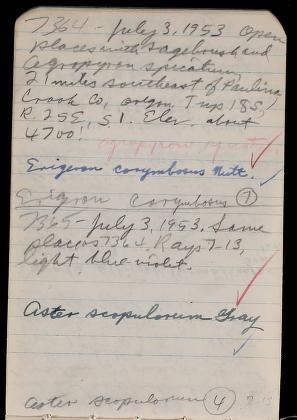 7364 - July 3, 1953 Open
places with sagebrush and
Agropyron spicatum,
21 miles southeast of Paulina
Crook Co, Oregon. T wp 18S,
R. 25E, S1. Elev. about
4700'.
agropyron spicat.
Erigeron corymbosus Nutt.
Erigeron corymbosus 7
7365 - July 3, 1953. Same
place as 7364. Rays 7-13,
light blue-violet.
Aster scopulorum Gray
Aster scopulorum 4